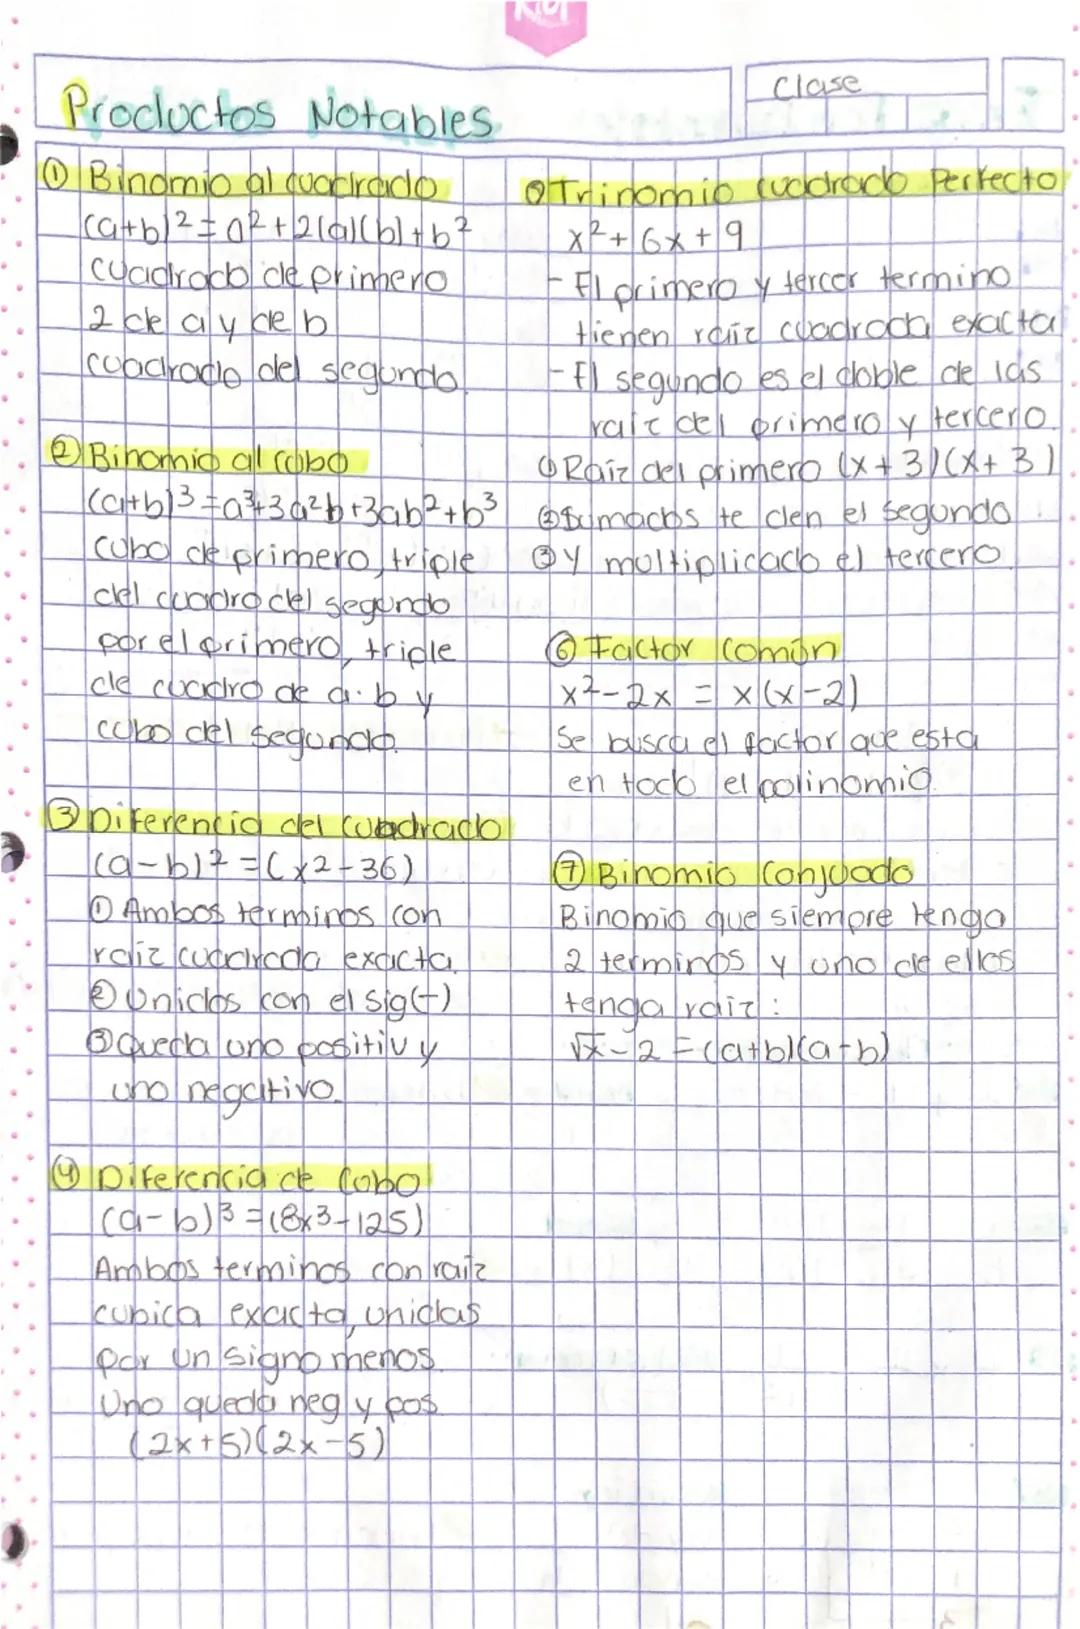 Kiut
Productos Notables
Clase
① Binomio al cuadrado
(a+b)² = a² + 2(a)(b) + b²
cuadrado de primero
2 de a y de b
cuadrado del segundo.
② Binomio al cubo
(a+b)³ = a³+3a²b+3ab²+b³
cubo de primero, triple
del cuadro del segundo
por el primero, triple
de cuadro de a·b y
cubo del segundo.
③ Diferencia del cuadrado
(a-b)² = (x2-36)
① Ambos terminos con
raiz cuadrada exacta.
② Unidos con el sig(-)
③ Queda uno positiv y
uno negativo.
④ Diferencia de Cubo
(a-b)³ = (8x3-125)
Ambos terminos con raiz
cubica exacta, unidas
por un signo menos.
Uno queda neg y pos.
(2x+5)(2x-5)
Trinomio cuadrado Perfecto
x²+6x+9
- El primero y tercer termino
tienen raiz cuadrada exacta
- El segundo es el doble de las
raiz del primero y tercero.
① Raiz del primero (x+3)(x+3)
② Sumados te den el segundo
③ Y multiplicado el tercero.
⑥ Factor Común
x²-2x = x(x-2)
Se busca el factor que esta
en todo el polinomio.
⑦ Binomio Conjuado
Binomio que siempre tenga
2 terminos y uno de ellos
tenga raiz:
√x-2 = (a+b)(a-b)